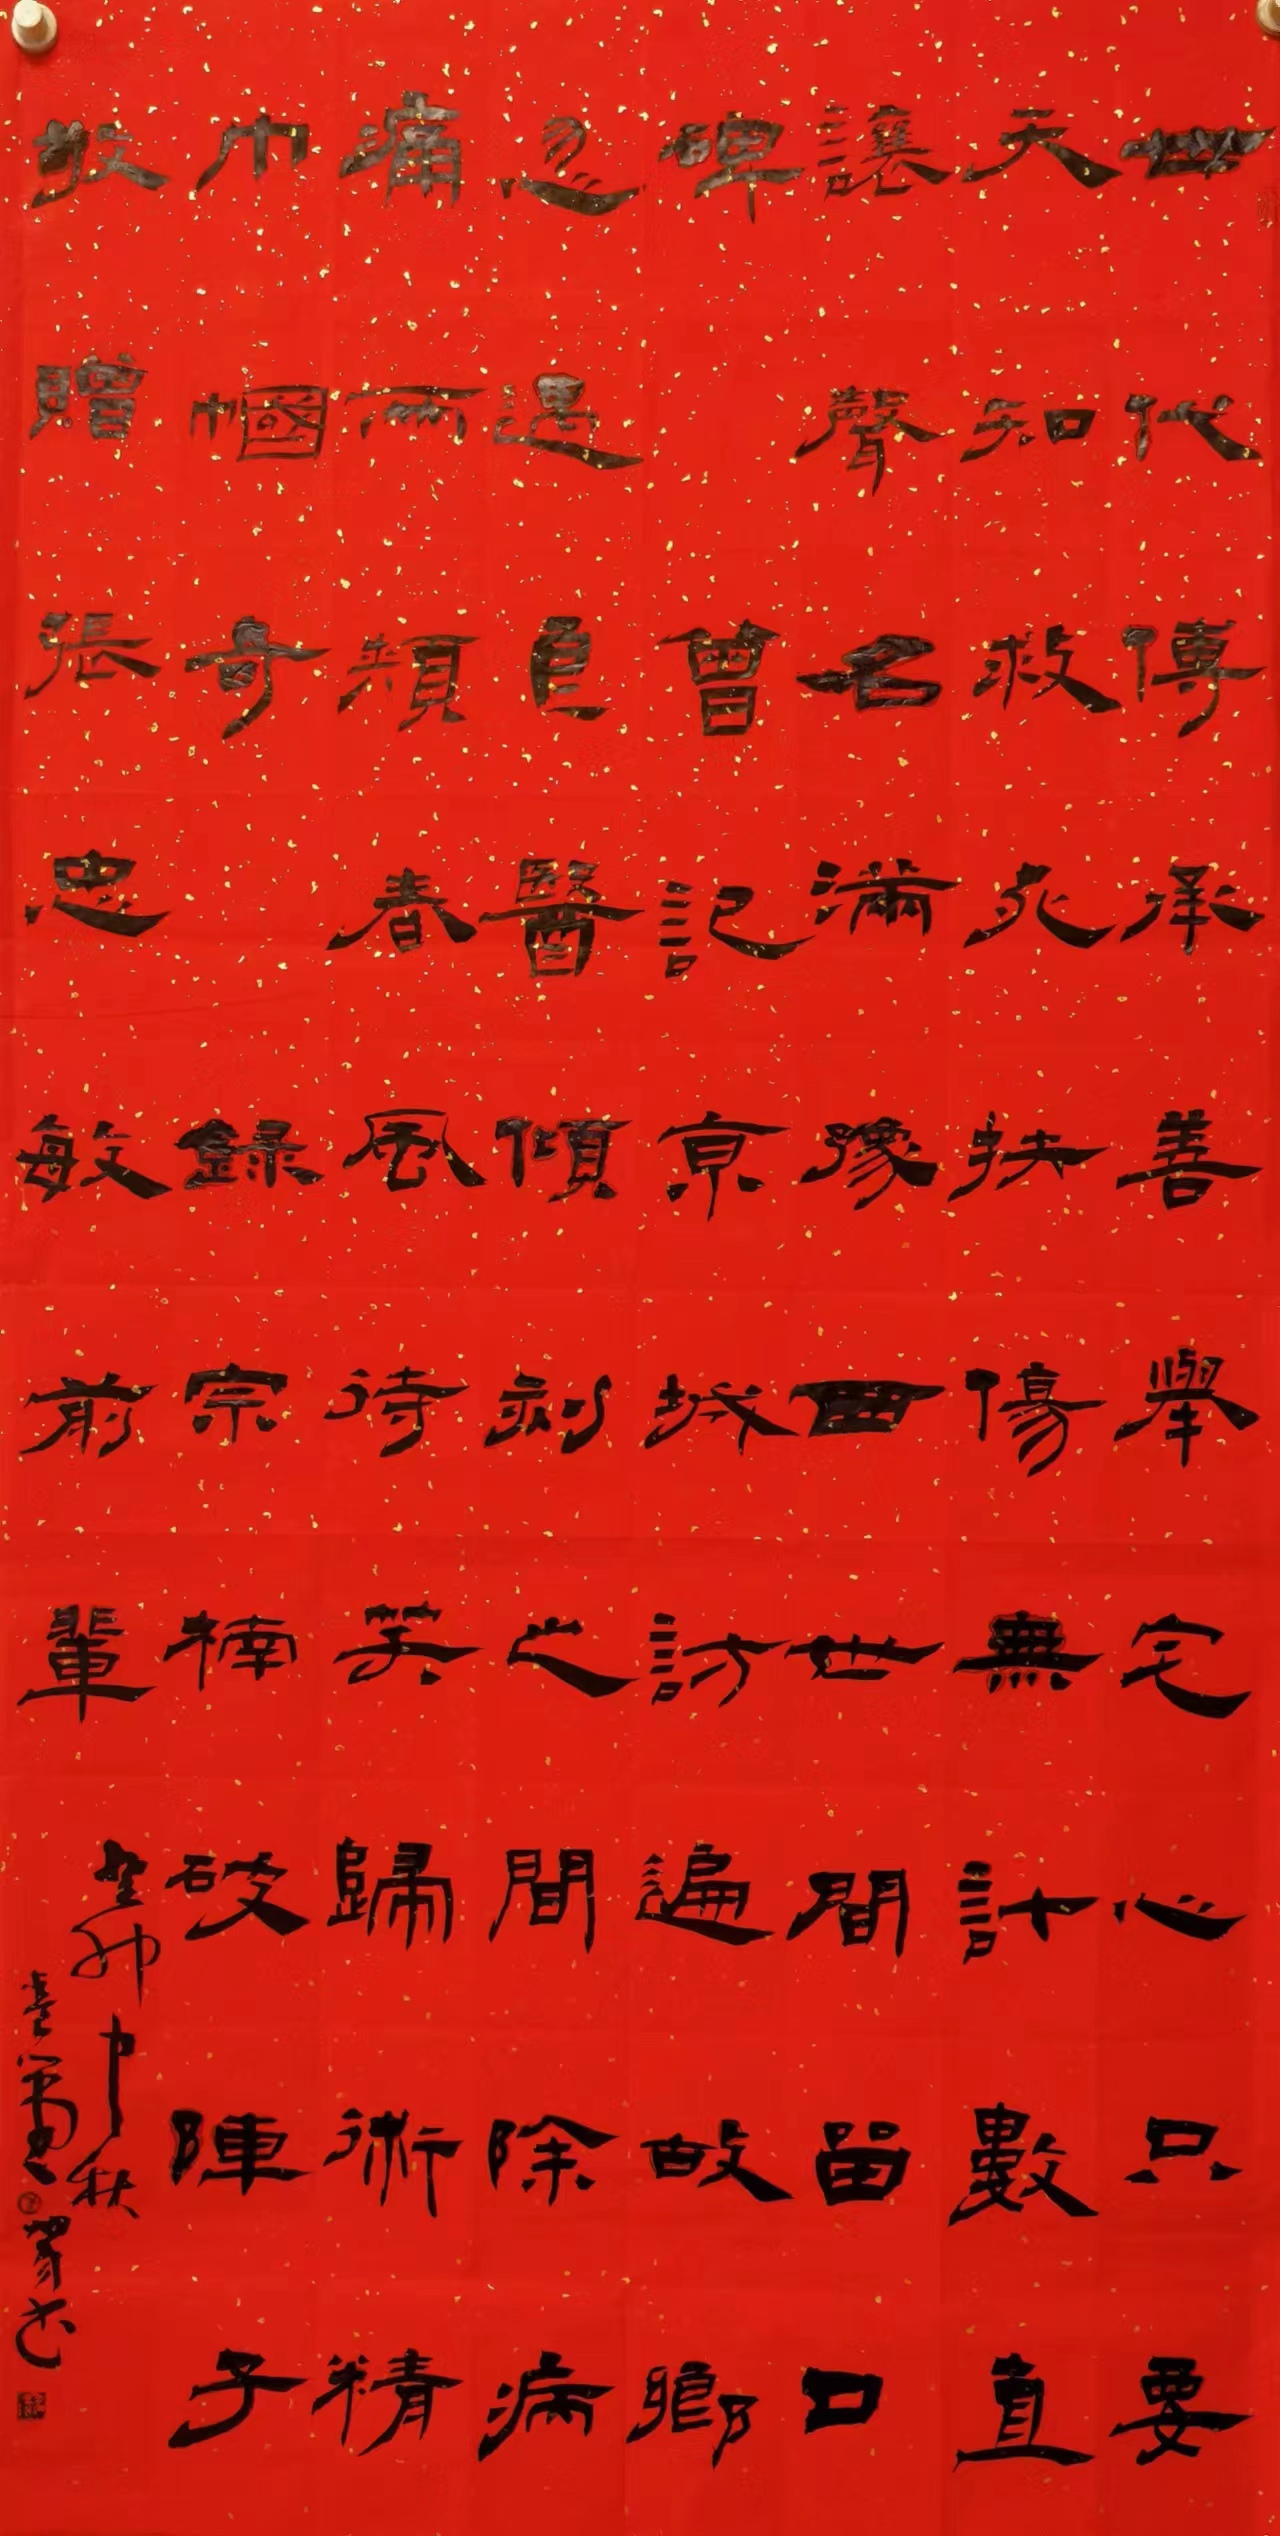 世代傳承善舉宅心只要
天知救死扶傷無計數直
讓聲名滿豫西世間留口
碑 曾記京城訪遍故鄉
忽遇良醫傾刻之間除病
痛兩頰春風待笑歸術精
巾幗奇 錄宗楠破陣子
敬贈張忠敏前輩
癸卯中秋
書